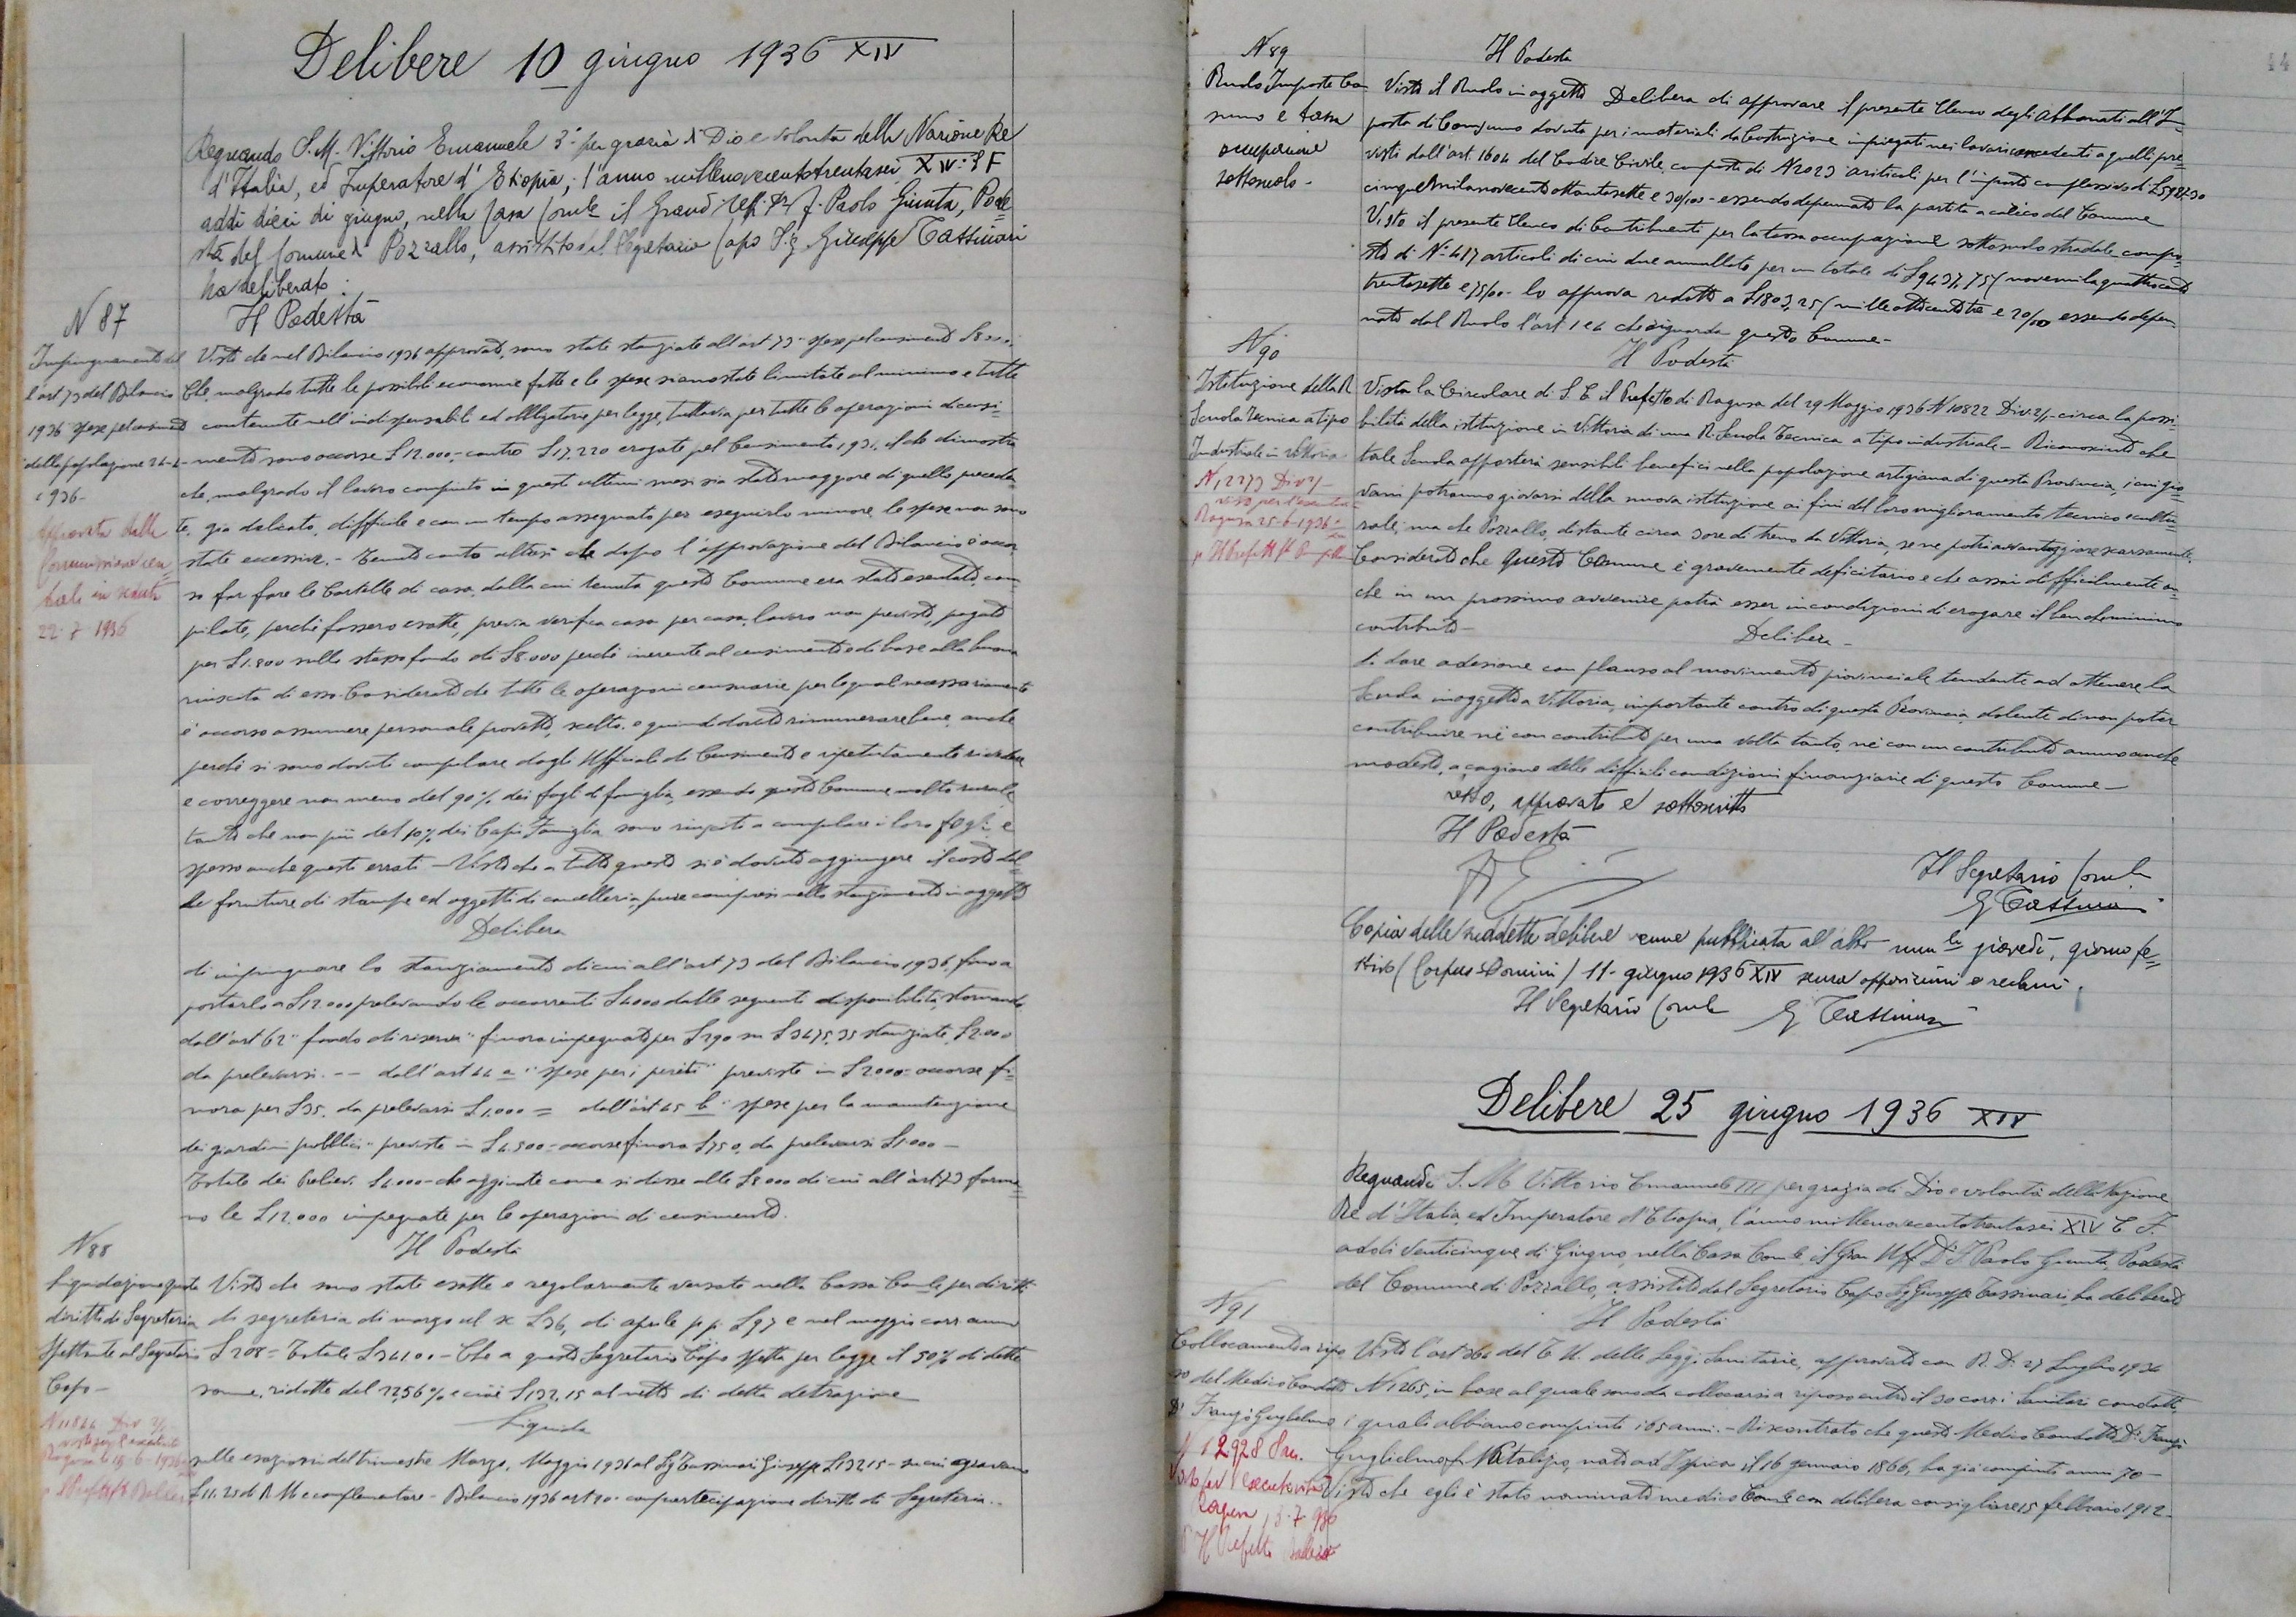 Delibere 10 giugno 1936 XIV
Regnando S. M. Vittorio Emanuele 3° per grazia di Dio e volontà della Nazione Re
d'Italia, ed Imperatore d'Etiopia, l'anno millenovecentotrentasei XIV° E F
addì dieci di giugno, nella Casa Com.le il Grand. Uff. Paolo Giunta, Pode=
stà del Comune di Pozzallo, assistito dal Segretario Capo Sig Giuseppe Tassinari
ha deliberato:
N 87
Il Podestà
Impinguamento del
l'art 73 del Bilancio
1936 spese pel censimento
della popolazione 21-4-
1936-
Approvata dalla
Commissione cen
trale in seduta
22-7-1936
Visto che nel Bilancio 1936 approvato, sono state stanziate all'art 73 - spese pel censimento £8000.
Che, malgrado tutte le possibili economie fatte e le spese siano state limitate al minimo e tutte
contenute nell'indispensabili ed obbligatorie per legge, tuttavia per tutte le operazioni di censi=
mento sono occorse £12.000, contro £17.220 erogate pel Censimento 1931, il che dimostra
che, malgrado il lavoro compiuto in questi ultimi mesi sia stato maggiore di quello preceden
te, già delicato, difficile e con un tempo assegnato per eseguirlo minore, le spese non sono
state eccessive. - Tenuto conto altresì che dopo l'approvazione del Bilancio è occor
so far fare le Cartelle di casa, dalla cui tenuta questo Comune era stato esentato, com
pilate, perché fossero esatte, previa verifica casa per casa, lavoro non previsto, pagato
per £1.800 sullo stesso fondo di £8.000 perché inerente al censimento e di base alla buona
riuscita di esso. Considerato che tutte le operazioni censuarie per le quali necessariamente
è occorso assumere personale provetto, scelto e quindi dovuto rimunerare bene, anche
perché si sono dovute compilare dagli Ufficiali di Censimento e ripetutamente rivedere
e correggere non meno del 90% dei fogli di famiglia, essendo questo Comune molto rurale
tanto che non più del 10% dei Capi Famiglia sono riusciti a compilare i loro fogli e
spesso anche questi errati - Visto che a tutto questo si è dovuto aggiungere il costo del=
le forniture di stampe ed oggetti di cancelleria, pure compresi nello stanziamento in oggetto
Delibera
di impinguare lo stanziamento di cui all'art 73 del Bilancio 1936, fino a
portarlo a £12.000 prelevando le occorrenti £4000 dalle seguenti disponibilità, stornando
dall'art 62 "fondo di riserva" finora impegnato per £290 su £3675,35 stanziate, £2.000
da prelevarsi. -- dall'art 44 a "spese per i periti" previste in £2000= occorse fi=
nora per £35. da prelevarsi £1.000 = dall'art 45 b "spese per la manutenzione
dei giardini pubblici" previste in £4.500= occorse finora £750, da prelevarsi £1000 -
Totale dei Preliev. £4.000 - che aggiunte come si disse alle £8000 di cui all'art 73 forma=
no le £12.000 impegnate per le operazioni di censimento.
N 88
Il Podestà
Liquidazione quota
diritti di Segreteria
spettante al Segretario
Capo -
N 11824 Div 2/
visto per l'esecutività
Ragusa li 15-6-1936
p. Il Prefetto
Visto che sono state esatte e regolarmente versate nella Cassa Com.le per diritti
di segreteria di marzo u.s. £36, di aprile p.p. £97 e nel maggio corr anno
£208= Totale £341.0. - Che a questo Segretario Capo spetta per legge il 50% di dette
somme, ridotte del 22,56% e cioè £132,15 al netto di detta detrazione
Liquida
sulle esazioni del trimestre Marzo, Maggio 1936 al Sig Tassinari Giuseppe £132,15 - su cui gravano
£11.23 di R. M e complementare - Bilancio 1936 art 20 - compartecipazione diritti di Segreteria..
N 89
Il Podestà
Ruolo Imposte Con
sumo e tassa
occupazione
sottosuolo -
Visto il Ruolo in oggetto Delibera di approvare il presente Elenco degli Abbonati all'Im=
posta di Consumo dovuta per i materiali da Costruzione impiegati nei lavori eccedenti a quelli pre=
visti dall'art. 1604 del Codice Civile, composto di N 2023 articoli per l'importo complessivo di £5987.30
cinquemilanovecentottantasette e 30/100 - essendo depennato la partita a carico del Comune
Visto il presente Elenco di Contribuenti per la tassa occupazione sottosuolo stradale compo=
sto di N° 417 articoli di cui due annullate per un totale di £9437,75 (novemilaquattrocento
trentasette e 75/100 - lo approva ridotto a £1803,25 (milleottocentotre e 20/100 essendo depen
nato dal Ruolo l'art 1 e 4 che riguarda questo Comune -
N 90
Il Podestà
Istituzione della R
Scuola Tecnica a tipo
Industriale in Vittoria
N. 12273 Div 2/
visto per l'esecutività
Ragusa 25-6-1936
p Il Prefetto
Vista la Circolare di S. E il Prefetto di Ragusa del 29 Maggio 1936 N 10822 Div 2/ - circa la possi
bilità della istituzione in Vittoria di una R. Scuola Tecnica a tipo industriale - Riconosciuto che
tale Scuola apporterà sensibili benefici nella popolazione artigiana di questa Provincia, i cui gio=
vani potranno giovarsi della nuova istituzione ai fini del loro miglioramento tecnico e cultu=
rale, ma che Pozzallo, distante circa 3 ore di treno da Vittoria, se ne potrà avvantaggiare scarsamente.
Considerato che questo Comune è gravemente deficitario e che assai difficilmente an=
che in un prossimo avvenire potrà esser in condizioni di erogare il benché minimo
contributo -
Delibera -
di dare adesione con plauso al movimento provinciale tendente ad ottenere la
Scuola in oggetto a Vittoria, importante centro di questa Provincia, dolente di non poter
contribuire né con contributo per una volta tanto, né con un contributo annuo anche
modesto, a cagione delle difficili condizioni finanziarie di questo Comune -
Letto, approvato e sottoscritto
Il Podestà
Il Segretario Com.le
G Tassinari
Copia delle suddette delibere venne pubblicata all'albo giovedì, giorno fe=
stivo (Corpus Domini) 11 - giugno 1936 XIV senza opposizioni o reclami.
Il Segretario Com.le G Tassinari
Delibere 25 giugno 1936 XIV
Regnando S. M Vittorio Emanuele III per grazia di Dio e volontà della Nazione
Re d'Italia, ed Imperatore d'Etiopia, l'anno millenovecentotrentasei XIV E. F.
addì venticinque di Giugno, nella Casa Com.le il Gran Uff Paolo Giunta Podestà
del Comune di Pozzallo, assistito dal Segretario Capo Sig Giuseppe Tassinari, ha deliberato
N 91
Il Podestà
Collocamento a ripo
so del Medico Condotto
Dr Guglielmo
N 12928 San.
Visto per l'esecutività
Ragusa, 3-7-936
p Il Prefetto
Visto l'art 364 del T. U. delle Leggi Sanitarie, approvato con R. D. 27 Luglio 1934
N 1265, in base al quale sono da collocarsi a riposo entro il 30 corr i Sanitari condotti,
i quali abbiano compiuto i 65 anni. - Riscontrato che questo Medico Condotto Dr
Guglielmo fu Natalizio, nato ad Ispica il 16 gennaio 1866, ha già compiuto anni 70 -
Visto che egli è stato nominato medico Com.le con delibera consigliare 15 febbraio 1912 -